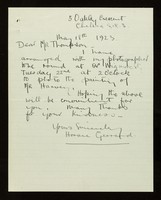 3 Dudley Crescent
Chelsea S.W.3
May 18th 1923
Dear Mr Thompson.
I have
arranged with my photographer
to be round at
Tuesday, 22nd at 3 O'clock
to photo the painting of
Mr
Hoping the above
will be convenient for
you. Many thanks
for your kindness.
Yours Sincerely
Horace